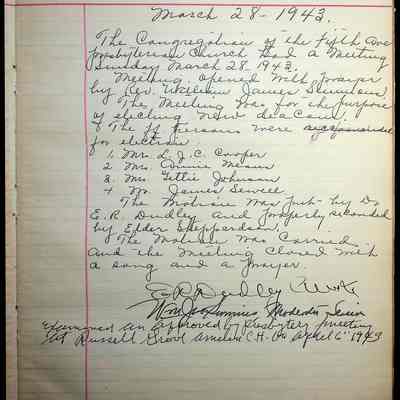 March 28 - 1943.
The Congregation of the Fifth Ave
Presbyterian Church held a Meeting
Sunday March 28 1943.
Meeting opened with prayer
by Rev. William James Simmons.
The Meeting was for the purpose
of electing new deacons.
The ff persons were
for election
1. Mrs. L. J. C. Cooper
2 Mrs. Annie Means
3. Mrs. Gettie Johnson
4 Mr. James Sewell
The Motion was put by D.
E. R. Dudley and properly seconded
by Elder Shepperdson.
The Motion was Carried
and the meeting closed with
a song and a prayer.
E. R. Dudley Clerk.
Wm Js Simmons, Moderator
Examined an approved by Presbytery meeting
at Russell Grove Amelia C.H. Va April 6" 1943